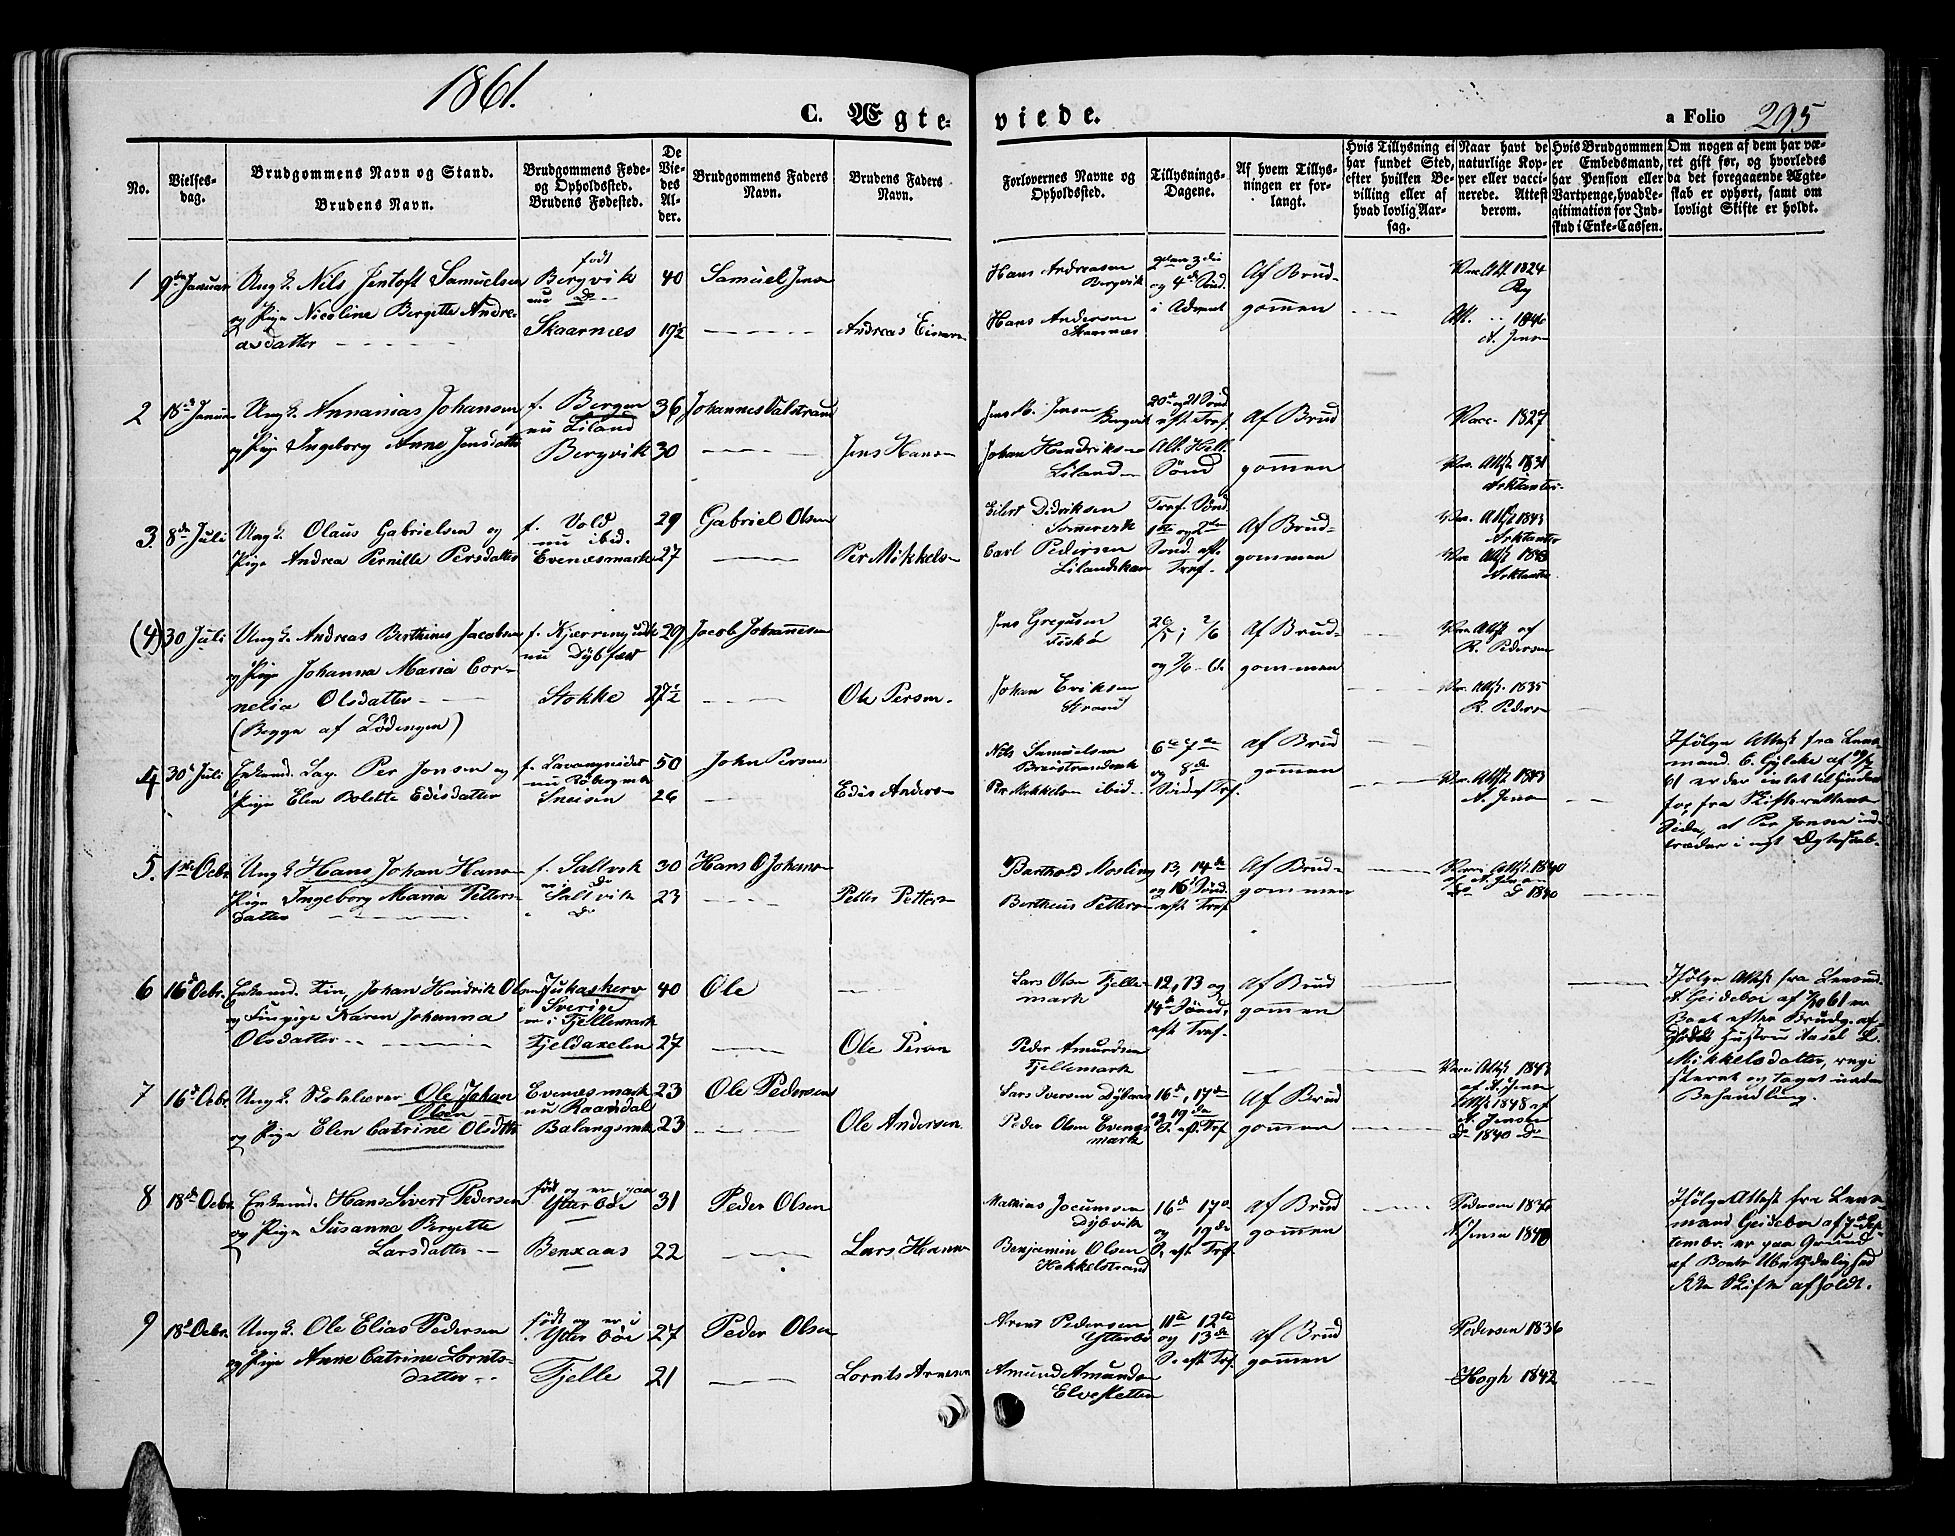 1861.
C. Ægteviede.
a Folio 295
No.
Vielses-
dag.
Brudgommens Navn og Stand.
Brudens Navn.
Brudgommens Føde-
og Opholdssted.
Brudens Fødested.
De
Vie-
des
Al-
der.
Brudgommens Faders
Navn.
Brudens Faders
Navn.
Forlovernes Navne og
Opholdssted.
Tillysnings-
Dagene.
Af hvem Tillys-
ningen er for-
langt.
Hvis Tillysning ei
har fundet Sted,
efter hvilken Be-
villing eller af
hvad lovlig Aar-
sag.
Naar havt de
naturlige Kop-
per eller vacci-
nerede. Attest
derom.
Hvis Brudgommen
er Embedsmand,
har Pension eller
Vartpenge, hvad Le-
gitimation for Ind-
skud i Enke-Cassen.
Om nogen af dem har væ-
ret gift før, og hvorledes
da det foregaaende Ægte-
skab er ophørt, samt om
lovligt Skifte er holdt.
1 9de Januar Ung. Nils Jentoft Samuelsen
og Pige Nicoline Bergitte Andre-
asdatter
født
Bergvik
nu
Skaarnæs
40
19½
Samuel Jensen
Andreas
Hans Andreasen
Bergvik
Hans Andersen
Skaarnæs
3die
og 4de Sønd.
i Advent
Af Brud-
gommen
Vac Att. 1824
Att. 1846
A. Jensen
2 18de Januar Ung. Annanias Johansen
og Pige Ingeborg Anne Jensdatter
f. Bergen
nu Liland
Bergvik
36
30
Johannes Valstrand
Jens Hansen
Jens Jensen
Bergvik
Johan Hendriksen
Liland
20de og 21 Sønd
eft. Tref.
Sønd
Af Brud
gommen
Vacc. 1827
Vac. Attst 1831
3. 8de Juli Ung. Olaus Gabrielsen og
Pige Andrea Pernille Persdatter
f. Vold
nu ibid.
Evenæsmark
29
27
Gabriel Olsen
Per Mikkelsen
Eilert Didriksen
Carl Pedersen
Tref. Sønd.
1ste og 2den
Sønd. eft.
Tref.
Af Brud-
gommen
Vac. Attst 1843
Vac Attst
(4) 30 Juli Ung. Andreas Berthinus Jacobsen
og Pige Johanna Maria Cor-
nelia Olsdatter
(Begge af Lødingen)
f. Kjærringvik
nu Dybfæst
Stokke
29
27½
Jacob Johannesen
Ole Persen
Jens Gregusen
Fiskø
Johan Eriksen
Strand
26/5; 2/6
og 9/6
Af Brud-
gommen
Vac Attst af
R. Pedersen
Vac. Attst. 1835
R. Pedersen
4 30 Juli Enkemd. Lap. Per Jonsen og
Pige Elen Bolette Edisdatter
f. Lavangseidet
Sneisen
50
26
John Persen
Edis Andersen
Nils Samuelsen
Per Mikkelsen ibid
6te 7de
og 8de
Sønd ef Tref.
af Brud
gommen
Vac. Attst 1843
A. Jensen
Ifølge Attest fra Lens-
mand. C. Gylche af
61 er der intet til Hinder
for fra Skifterettens
Side, at Per Jonsen ind-
træder i nyt Ægteskab.
5. 1ste Octbr Ung Hans Johan Hansen
Pige Ingeborg Maria Petters-
datter
f. Saltvik
do
Saltvik
do
30
23
Hans O Johansen
Petter Pettersen
Barthold Mosling
Bertheus Pettersen
13, 14de
og 16 Sønd.
eft. Tref
Af Brud-
gommen
Vac. Attst. 1840
af A. Jensen
Do Do 1840
6 16de Octbr. Enkemd. Fin, Johan Hindrik Olsen
og Finpige Karen Johanna
Olsdatter
Jukaskerv
i Sverige
nu i Fjellemark
Fjeldaxelen
40
27
Ole
Ole Persen
Lars Olsen Fjelle-
mark
Peder Amundsen
Fjellemark
12, 13 og
14de Sønd.
eft Tref.
Af Brud
gommen
Vac Attst 1843
af A. Jensen
Ifølge Attest fra Lensmd.
A. Geideboe af
Boet efter Brudg. af-
døde Hustru
Mikkelsdatter, regi
streret og taget under
Behandling.
7 16de Octbr. Ung. Skolelærer Ole Johan
Olsen
og Pige Elen Catrine Olsdtr
Evenæsmark
nu Raandal
Balangsmk
23
23
Ole Pedersen
Ole Andersen
Lars Iversen Dybvas
Peder Olsen Evenæs
mark
16de, 17de
og 19de
S. eft. Tref
Af Brud
gommen
Attst 1848 af
A. Jensen
Do 1840 Do
8 18de Octbr. Enkemd. Hans Sivert Pedersen
og Pige Susanne Bergette
Larsdatter
født og er paa
Ytterbøe
Benxaas
31
22
Peder Olsen
Lars Hansen
Mathias Jocumsen
Dybvik
Benjamin Olsen
Hekkelstrand
16de 17de
og 19de
S. eft Tref.
af Brud
gommen
Pedersen
A Jensen 1840
Ifølge Attest fra Lens
mand Geideboe af 7de Sep-
tembr. er paa Grund
af Boets Ubetydelighed
ikke Skifte afholdt.
9 18de Octbr. Ung. Ole Elias Pedersen
og Pige Anne Catrine Lornts-
datter
født og er i
Ytterbøe
Fjelle
27
21
Peder Olsen
Lornts Arnesen
Arent Pedersen
Ytterbø
Amund Amundsen
Elvesletten
11te 12te
og 13de
S. eft Tref.
af Brud
gommen
Pedersen 1836
Hogh 1842